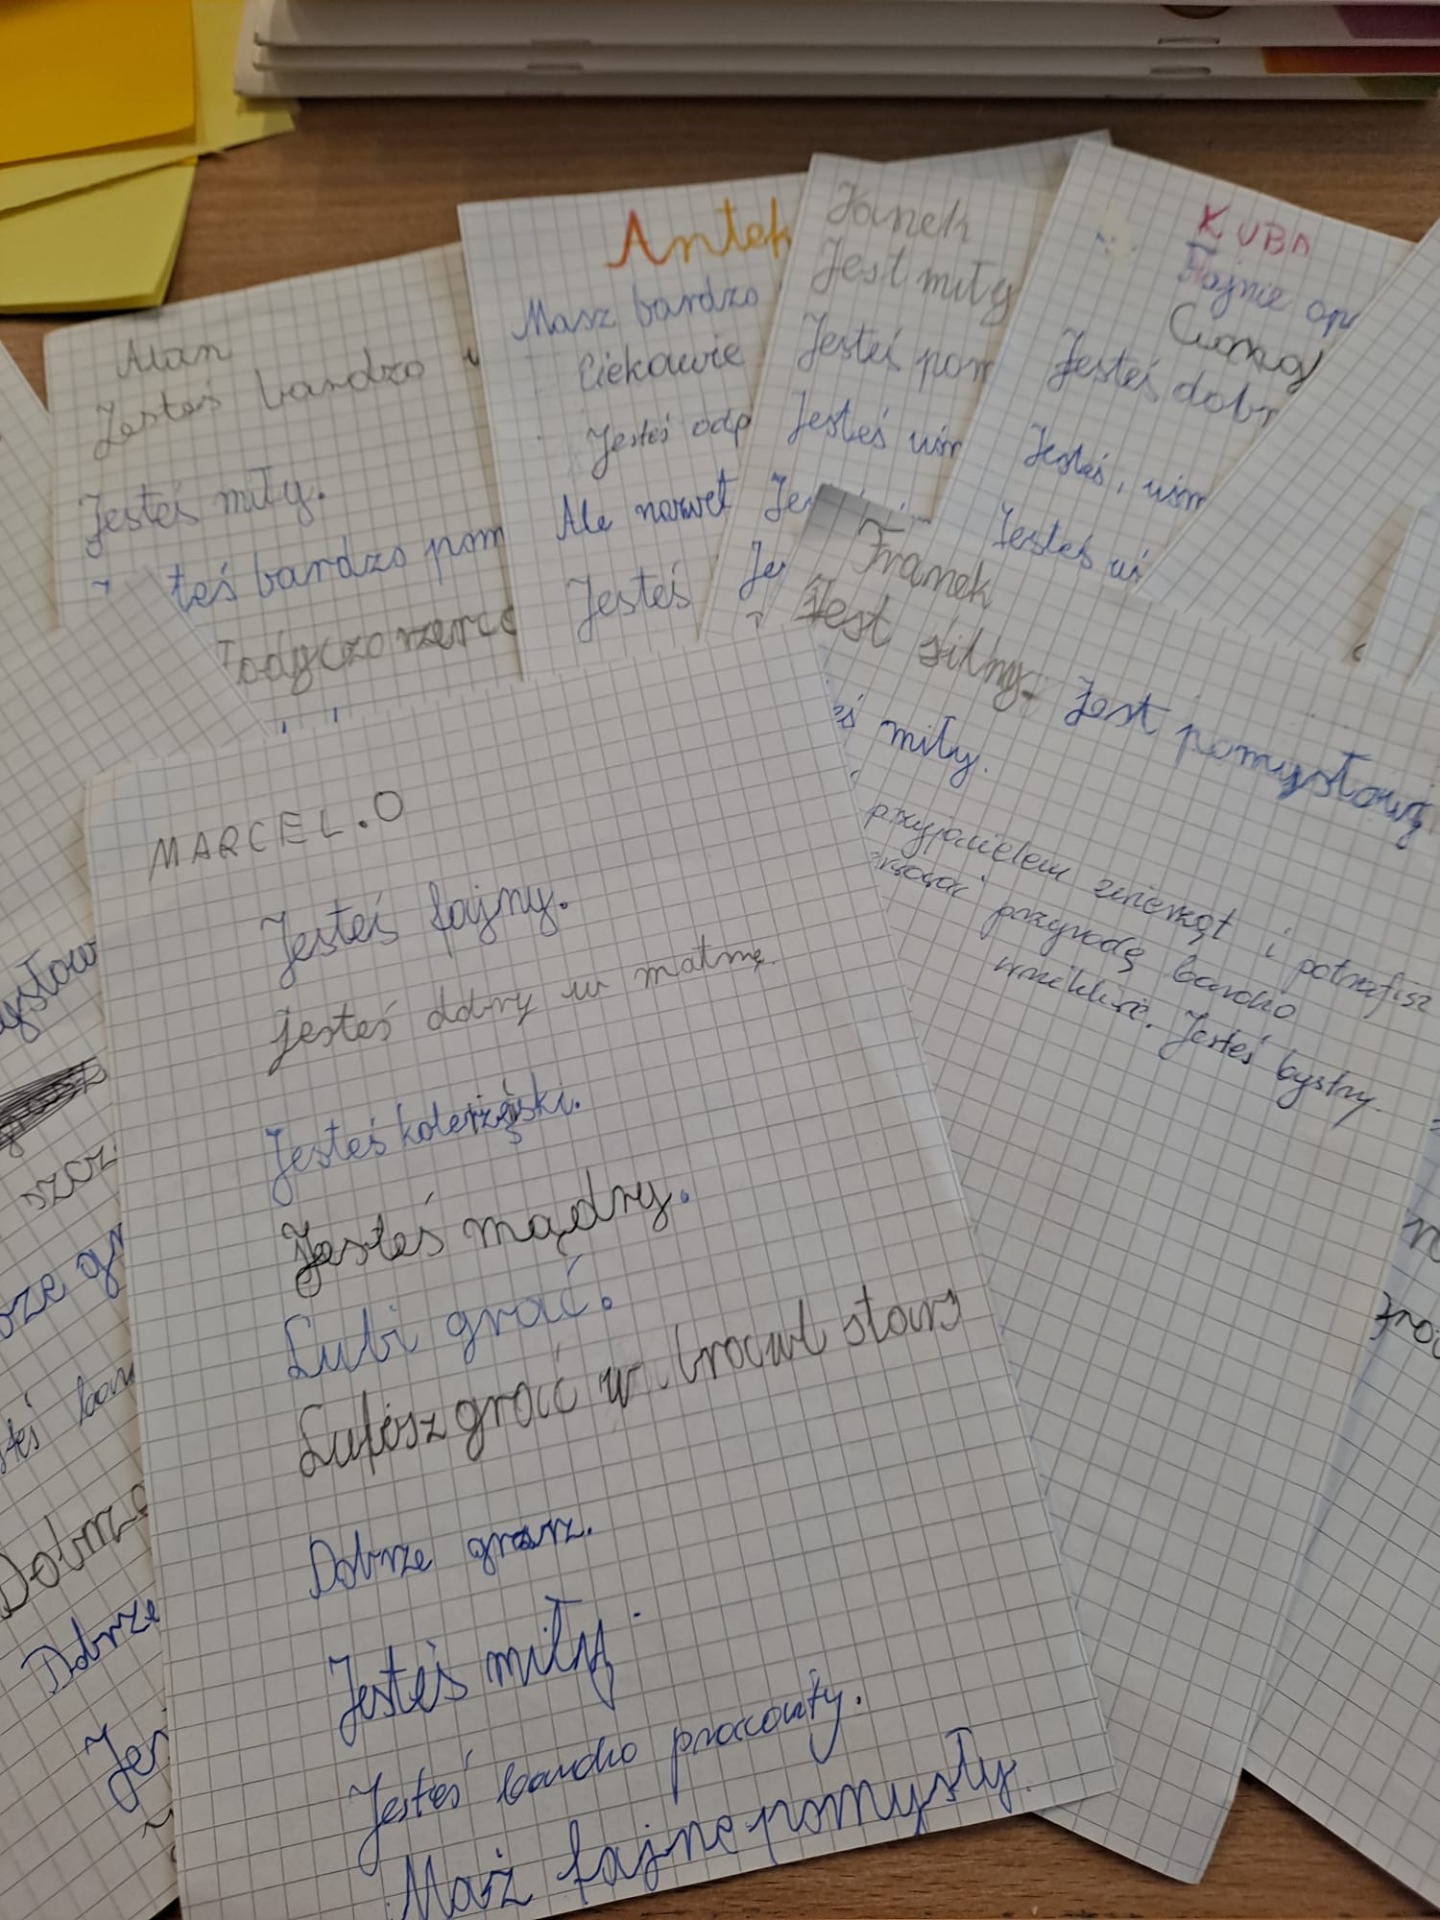 Alan
Jesteś bardzo
Jesteś miły.
teś bardzo pom
Antek
Masz bardzo
Ciekawie
Jesteś odp
Ale nawet
Jesteś
Janek
Jest miły
Jesteś pom
Jesteś uśm
Je
Je
KUBA
Fajnie op
Jesteś dobr
Jesteś, uśm
Jesteś uś
Franek
Jest silny. Jest pomysłowy
eś miły.
przyjacielem zwierząt i potrafisz
przyrodę bardzo
wnikliwie. Jesteś bystry.
MARCEL.O
Jesteś fajny.
Jesteś dobry w matmę.
Jesteś koleżęski.
Jesteś mądry.
Lubi grać.
Lubisz grać w brawl stars
Dobrze grasz.
Jesteś miły.
Jesteś bardzo pracowity.
Maż fajne pomysły.
ysłow
szcz
bar
Dobrze
Dobrze
Jes